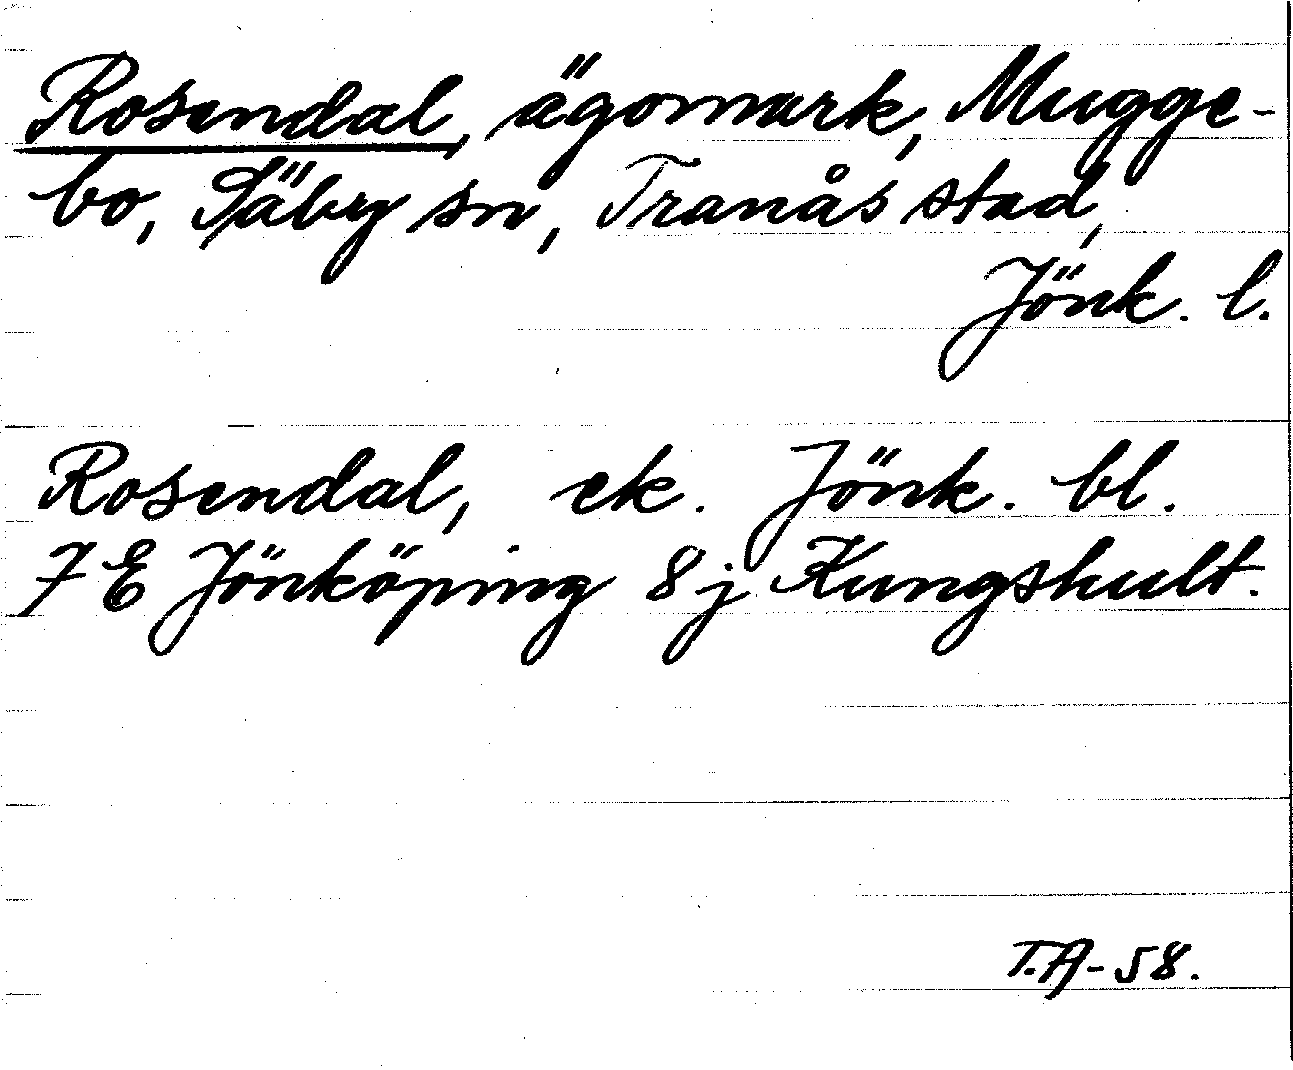 Rosendal, ägomark, Mugge-
bo, Säby sn, Tranås stad,
Jönk. l.
Rosendal, ek. Jönk. bl.
7 E Jönköping 8 j Kungshult.
T.A-58.